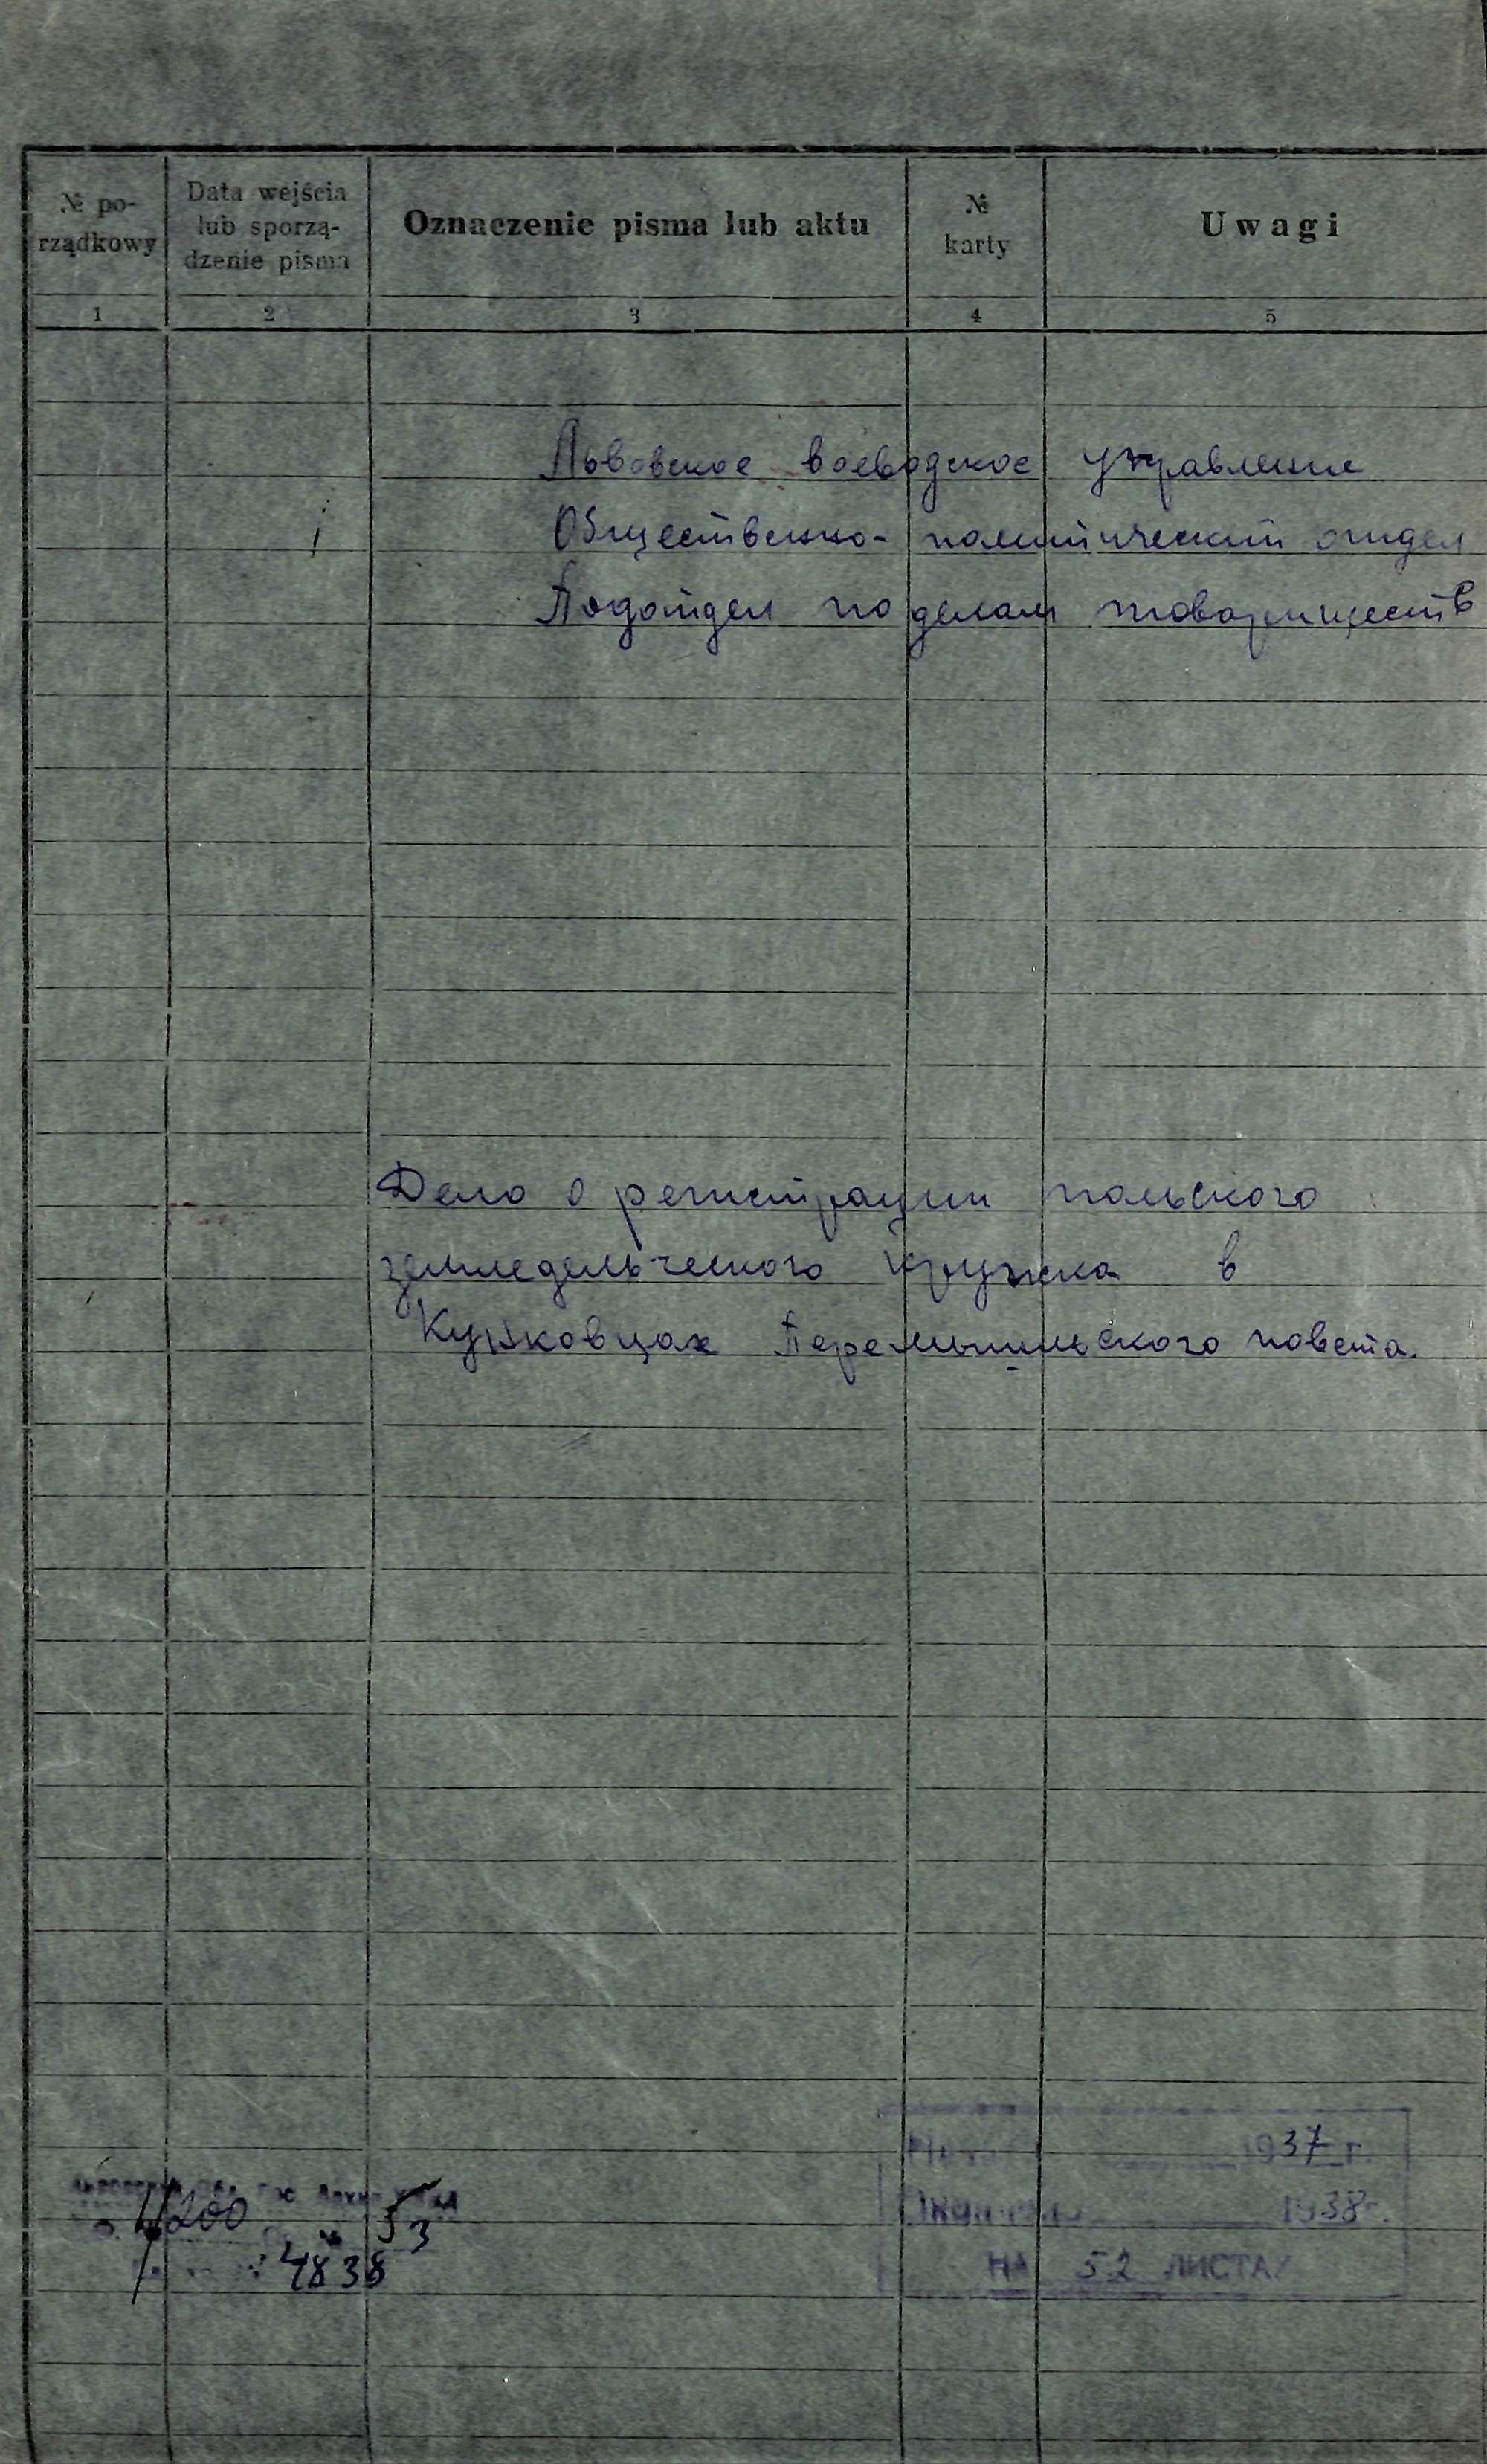 № po-
rządkowy
Data wejścia
lub sporzą-
dzenie pisma
Oznaczenie pisma lub aktu
№
karty
Uwagi
1 2 3 4 5
Львовское воеводское управление
Общественно-политический отдел
Подотдел по делам товариществ
Дело о регистрации польского
земледельческого кружка в
Куньковцах Перемышльского повета.
1937 г.
1938 г.
НА 52 ЛИСТАХ
1200
53
4838